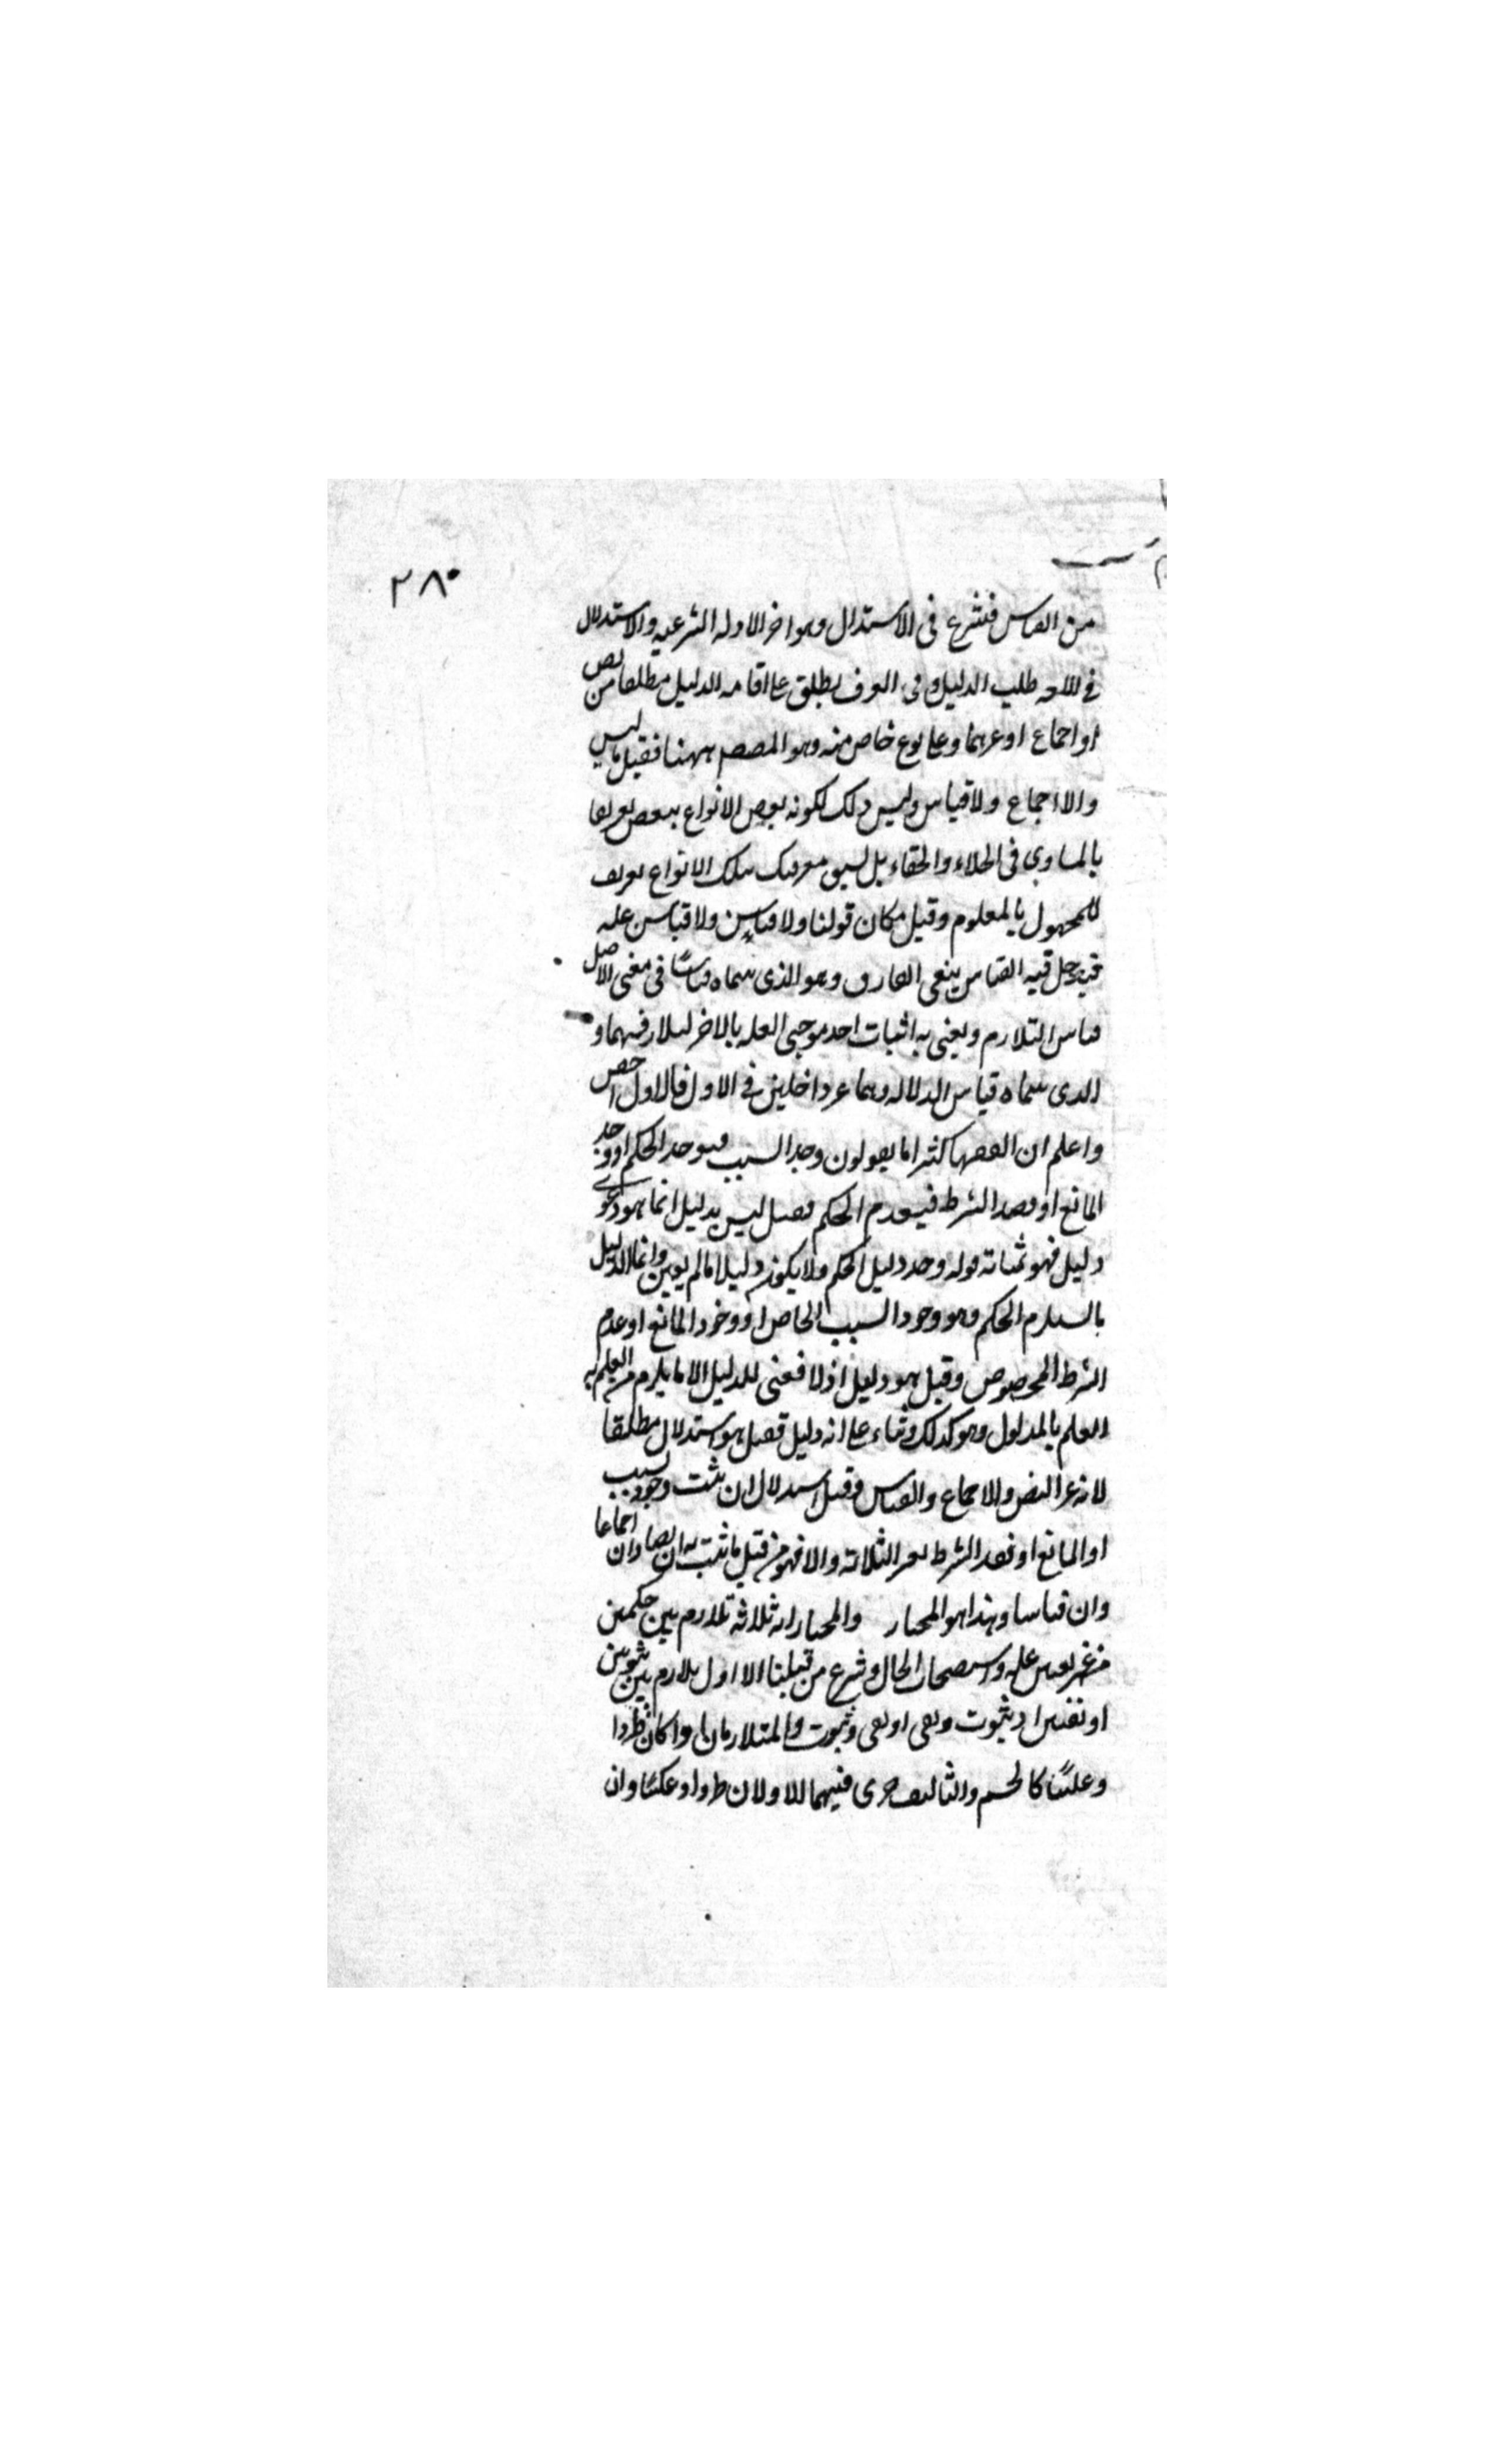 ٢٨٠
من القياس فنشرع فى الاستدلال وهو اخر الادله الشرعيه والاستدلال
فى اللغه طلب الدليل وفى العرف يطلق على اقامه الدليل مطلقا من نص
او اجماع او غيرهما وعلى نوع خاص منه وهو المقصود ههنا فقيل ما ليس
والا اجماع ولا قياس وليس ذلك لكونه بعض الانواع ببعض تعريفا
بالمساوى فى الجلاء والخفاء بل لسبق معرفتك بتلك الانواع تعريف
للمجهول بالمعلوم وقيل مكان قولنا ولا قياس ولا قياس عله
فيدخل فيه القياس بنفى الفارق وهو الذى سماه قياسًا فى معنى الاصل
قياس التلازم ويعنى به اثبات احد موجبى العله بالاخر لتلازمهما و
الذى سماه قياس الدلاله وهما غير داخلين فى الاول فالاول اخص
واعلم ان الفقها كثيرا ما يقولون وجد السبب فيوجد الحكم او وجد
المانع او فقد الشرط فيعدم الحكم فقيل ليس بدليل انما هو دعوى
دليل فهو بمثابة قوله وجد دليل الحكم ولا يكون دليلا ما لم يعين وانما الدليل
ما يستلزم الحكم وهو وجود السبب الخاص او وجود المانع او عدم
الشرط المخصوص وقيل هو دليل اذ لا معنى للدليل الا ما يلزم من العلم به
العلم بالمدلول وهو كذلك وبناء على انه دليل فقيل هو استدلال مطلقا
لانه غير النص والاجماع والقياس وقيل استدلال ان ثبت وجود السبب
او المانع او فقد الشرط بغير الثلاثة والا فهو من قبيل ما ثبت به ان نصا وان اجماعا
وان قياسا وهذا هو المختار والمختار انه ثلاثة تلازم بين حكمين
من غير تعيين عله واستصحاب الحال وشرع من قبلنا الا اول تلازم بين ثبوتين
او نفيين او ثبوت ونفى او نفى وثبوت والمتلازمان اما كان طردا
وعكسًا كالجسم والتاليف جرى فيهما الاولان طردا وعكسًا وان